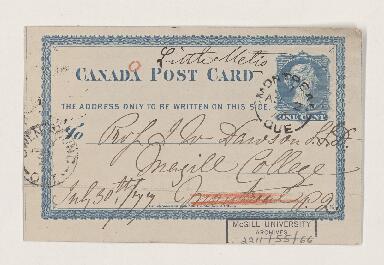 Little Metis
CANADA POST CARD
MONTREAL
QUE
ONE CENT
THE ADDRESS ONLY TO BE WRITTEN ON THIS SIDE.
To
Prof J W Dawson LL.D.
McGill College
Montreal P.Q.
July 30th/77
McGILL UNIVERSITY
ARCHIVES
2211/55/66